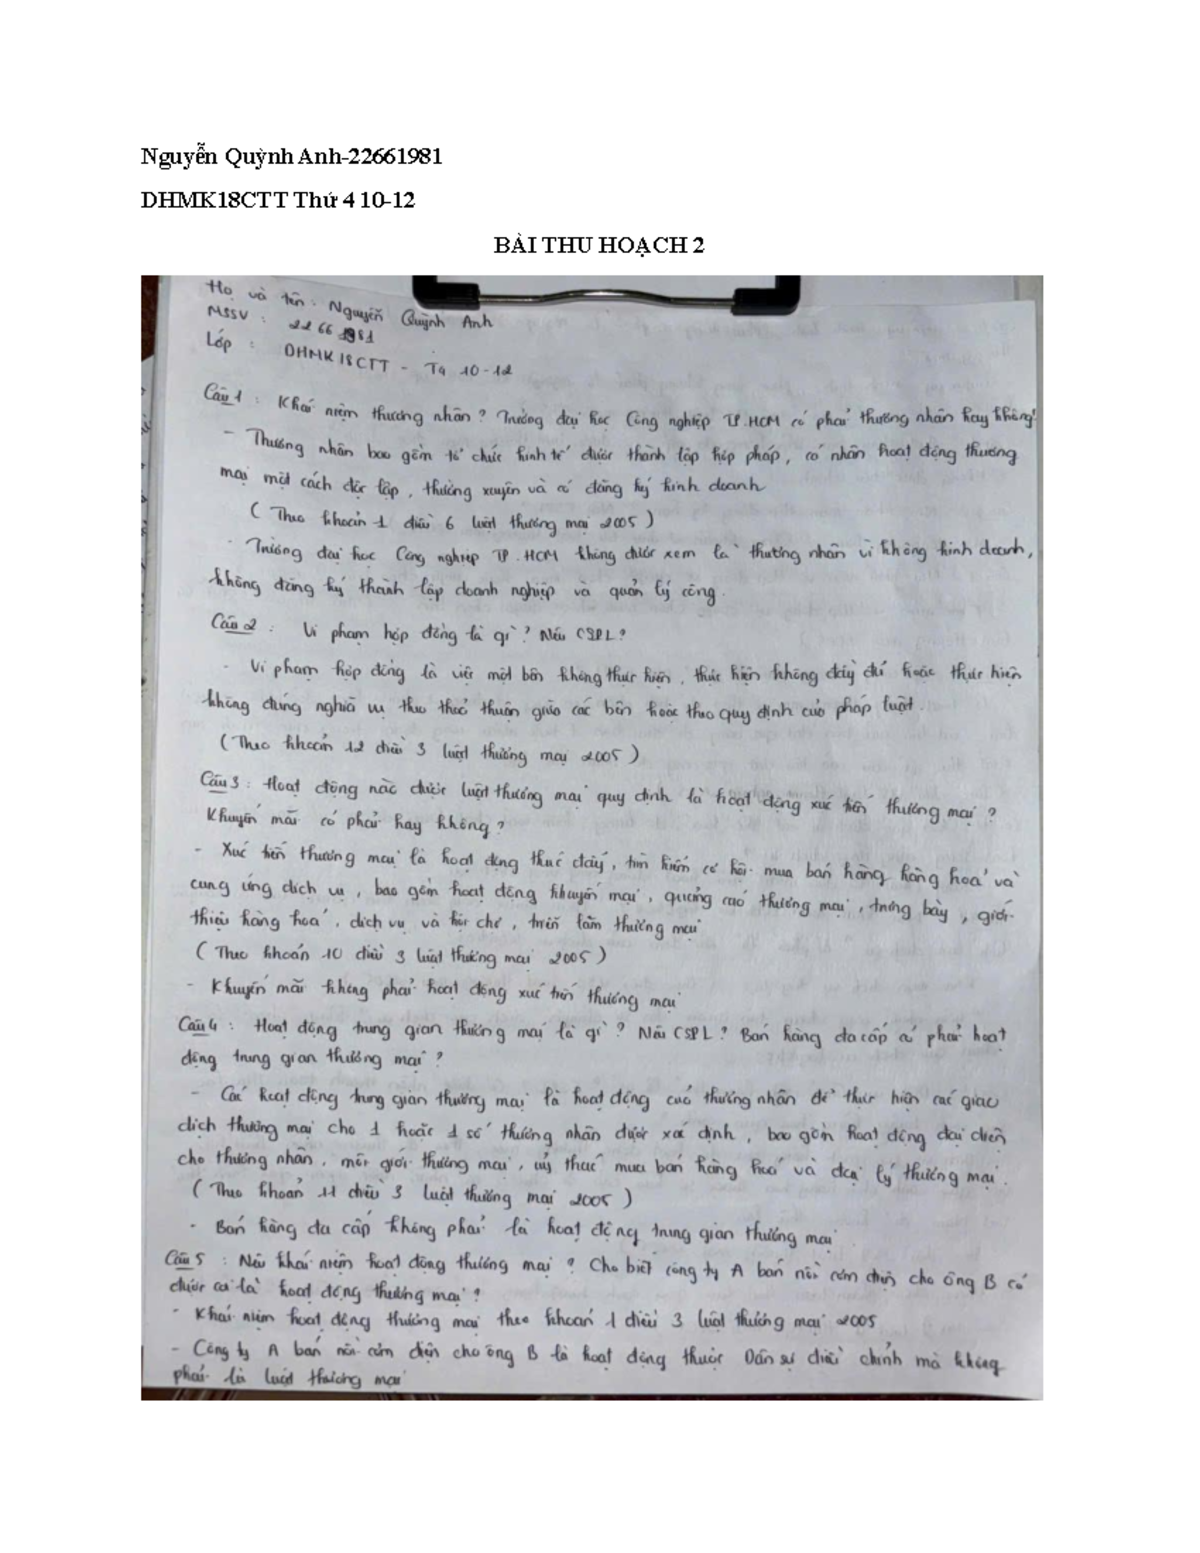 Nguyễn Quỳnh Anh-22661981
DHMK18CTT Thứ 4 10-12
BÀI THU HOẠCH 2
Họ và tên: Nguyễn Quỳnh Anh
MSSV: 22661981
Lớp: DHMK18CTT - T4 10-12
Câu 1: Khái niệm thương nhân? Trường đại học Công nghiệp TP.HCM có phải thương nhân hay không?
- Thương nhân bao gồm tổ chức kinh tế được thành lập hợp pháp, cá nhân hoạt động thương
mại một cách độc lập, thường xuyên và có đăng ký kinh doanh
(Theo khoản 1 điều 6 luật thương mại 2005)
- Trường đại học Công nghiệp TP.HCM không được xem là thương nhân vì không kinh doanh,
không đăng ký thành lập doanh nghiệp và quản lý công.
Câu 2: Vi phạm hợp đồng là gì? Nêu CSPL?
- Vi phạm hợp đồng là việc một bên không thực hiện, thực hiện không đầy đủ hoặc thực hiện
không đúng nghĩa vụ theo thoả thuận giữa các bên hoặc theo quy định của pháp luật.
(Theo khoản 12 điều 3 luật thương mại 2005)
Câu 3: Hoạt động nào được luật thương mại quy định là hoạt động xúc tiến thương mại?
Khuyến mãi có phải hay không?
- Xúc tiến thương mại là hoạt động thúc đẩy, tìm kiếm cơ hội mua bán hàng hàng hoá và
cung ứng dịch vụ, bao gồm hoạt động khuyến mại, quảng cáo thương mại, trưng bày, giới
thiệu hàng hoá, dịch vụ và hội chợ, triển lãm thương mại
(Theo khoản 10 điều 3 luật thương mại 2005)
- Khuyến mãi không phải hoạt động xúc tiến thương mại
Câu 4: Hoạt động trung gian thương mại là gì? Nêu CSPL? Bán hàng đa cấp có phải hoạt
động trung gian thương mại?
- Các hoạt động trung gian thương mại là hoạt động của thương nhân để thực hiện các giao
dịch thương mại cho 1 hoặc 1 số thương nhân được xác định, bao gồm hoạt động đại diện
cho thương nhân, môi giới thương mại, uỷ thác mua bán hàng hoá và đại lý thương mại.
(Theo khoản 11 điều 3 luật thương mại 2005)
- Bán hàng đa cấp không phải là hoạt động trung gian thương mại
Câu 5: Nêu khái niệm hoạt động thương mại? Cho biết công ty A bán nồi cơm điện cho ông B có
được coi là hoạt động thương mại?
- Khái niệm hoạt động thương mại theo khoản 1 điều 3 luật thương mại 2005
- Công ty A bán nồi cơm điện cho ông B là hoạt động thuộc Dân sự điều chỉnh mà không
phải là luật thương mại